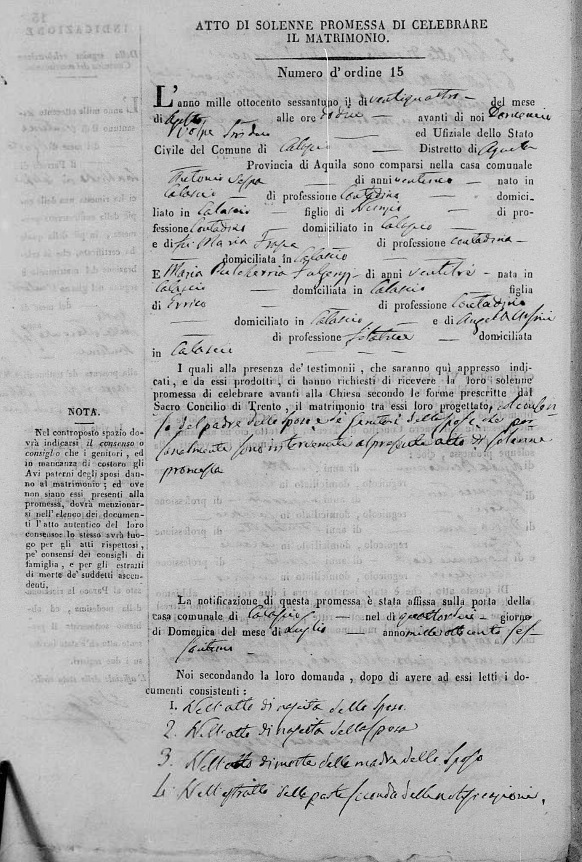 ATTO DI SOLENNE PROMESSA DI CELEBRARE
IL MATRIMONIO.
Numero d'ordine 15
L'anno mille ottocento sessantuno il dì ventiquattro del mese
di alle ore dodici avanti di noi Domenico
Volpe Sindaco ed Ufiziale dello Stato
Civile del Comune di Calascio Distretto di Aquila
Provincia di Aquila sono comparsi nella casa comunale
Antonio di anni nato in
Calascio di professione Contadino domici-
liato in Calascio figlio di Nunzio di pro-
fessione Contadino domiciliato in Calascio
e di fu Maria di professione contadina
domiciliata in Calascio
E Maria Pulcherria di anni ventitre nata in
Calascio domiciliata in Calascio figlia
di Errico di professione Contadino
domiciliato in Calascio e di Angela
di professione Filatrice domiciliata
in Calascio
I quali alla presenza de' testimonii, che saranno quì appresso indi-
cati, e da essi prodotti, ci hanno richiesti di ricevere la loro solenne
promessa di celebrare avanti alla Chiesa secondo le forme prescritte dal
Sacro Concilio di Trento, il matrimonio tra essi loro progettato, col consen-
so del padre dello sposo e de' genitori della sposa, che per-
sonalmente sono intervenuti al presente atto di solenne
promessa
NOTA.
Nel controposto spazio do-
vrà indicarsi il consenso o
consiglio che i genitori, ed
in mancanza di costoro gli
Avi paterni degli sposi dan-
no al matrimonio; ed ove
non siano essi presenti alla
promessa, dovrà menzionar-
si nell'elenco dei documen-
ti l'atto autentico del loro
consenso: lo stesso avrà luo-
go per gli atti rispettosi,
pe' consensi dei consigli di
famiglia, e per gli estratti
di morte de' suddetti ascen-
denti.
La notificazione di questa promessa è stata affissa sulla porta della
casa comunale di Calascio nel dì quattordici giorno
di Domenica del mese di Luglio anno mille ottocento ses-
santuno
Noi secondando la loro domanda, dopo di avere ad essi letti i do-
cumenti consistenti:
1. Nell'atto di nascita dello sposo.
2. Nell'atto di nascita della sposa
3. Nell'atto di morte della madre dello sposo
4. Nell'estratto della parte seconda della notificazione.